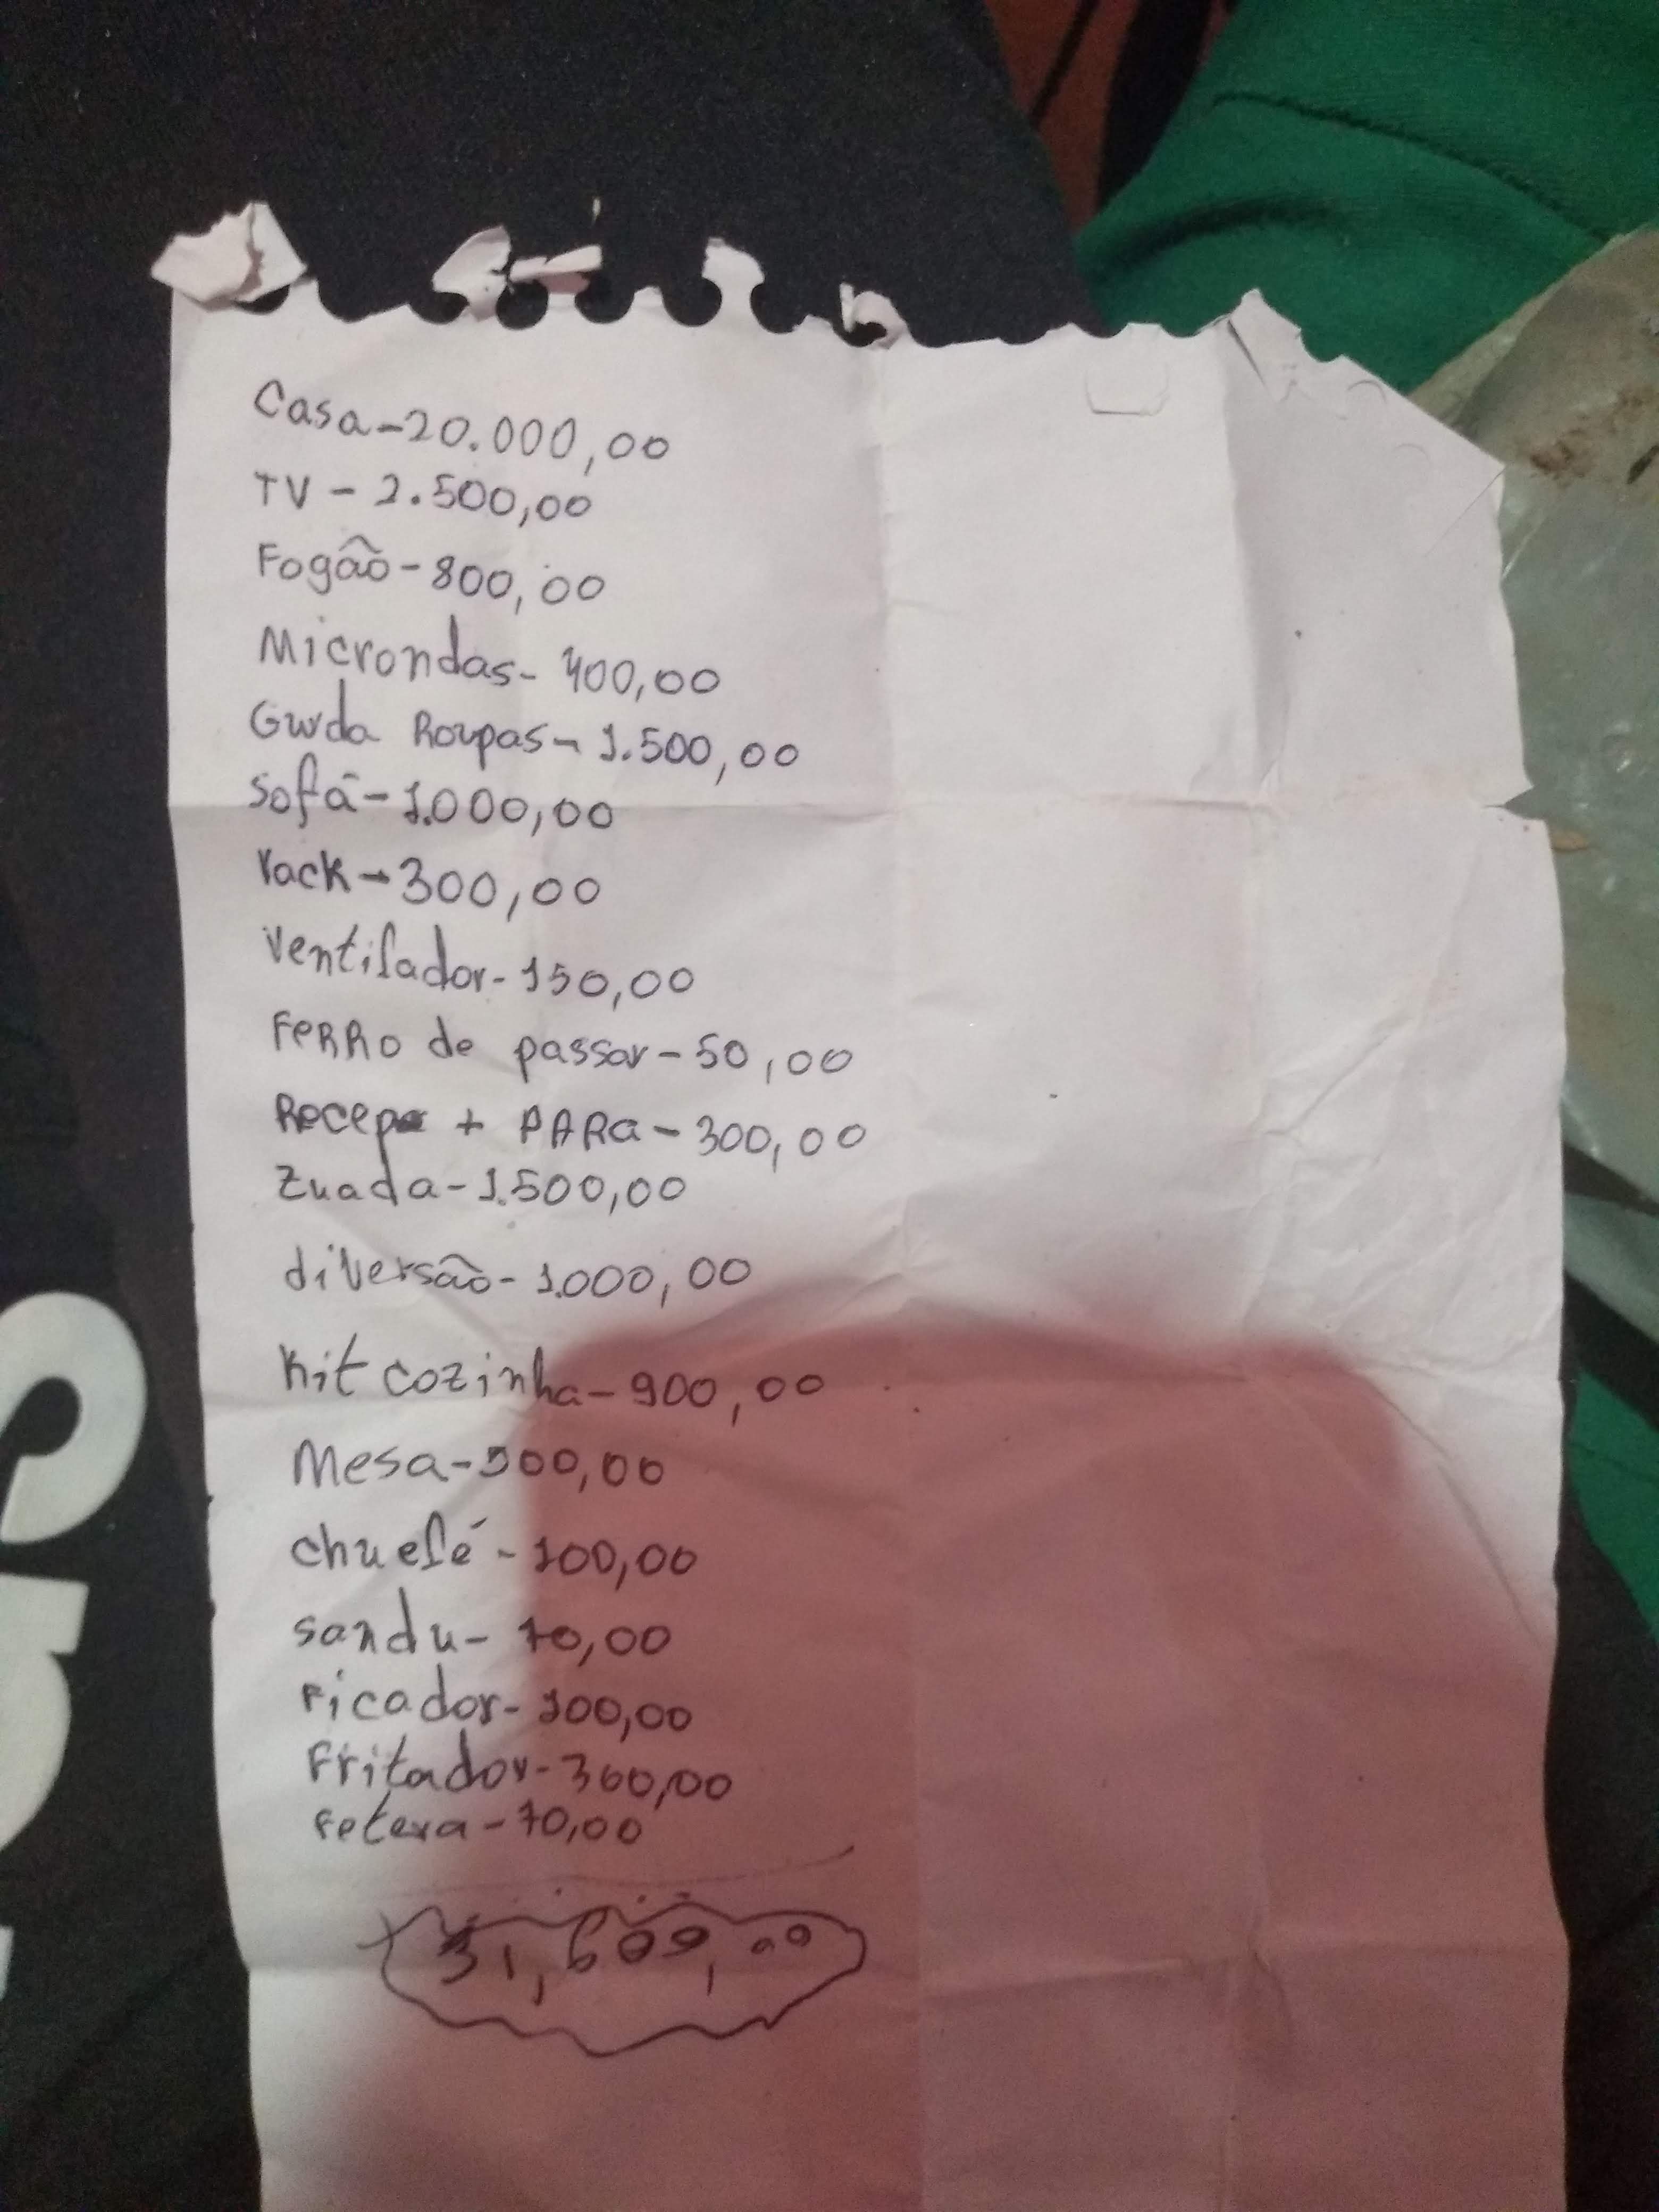 Casa-20.000,00
TV-2.500,00
Fogão-800,00
Microndas-400,00
Gurda Roupas-1.500,00
Sofá-1.000,00
rack-300,00
Ventilador-150,00
Ferro de passar-50,00
Recep + PARA-300,00
Zuada-1.500,00
diversão-1.000,00
Kit cozinha-900,00
Mesa-500,00
chuelé-100,00
sandu-70,00
Ficador-100,00
Fritador-360,00
Fetera-70,00
31,600,00